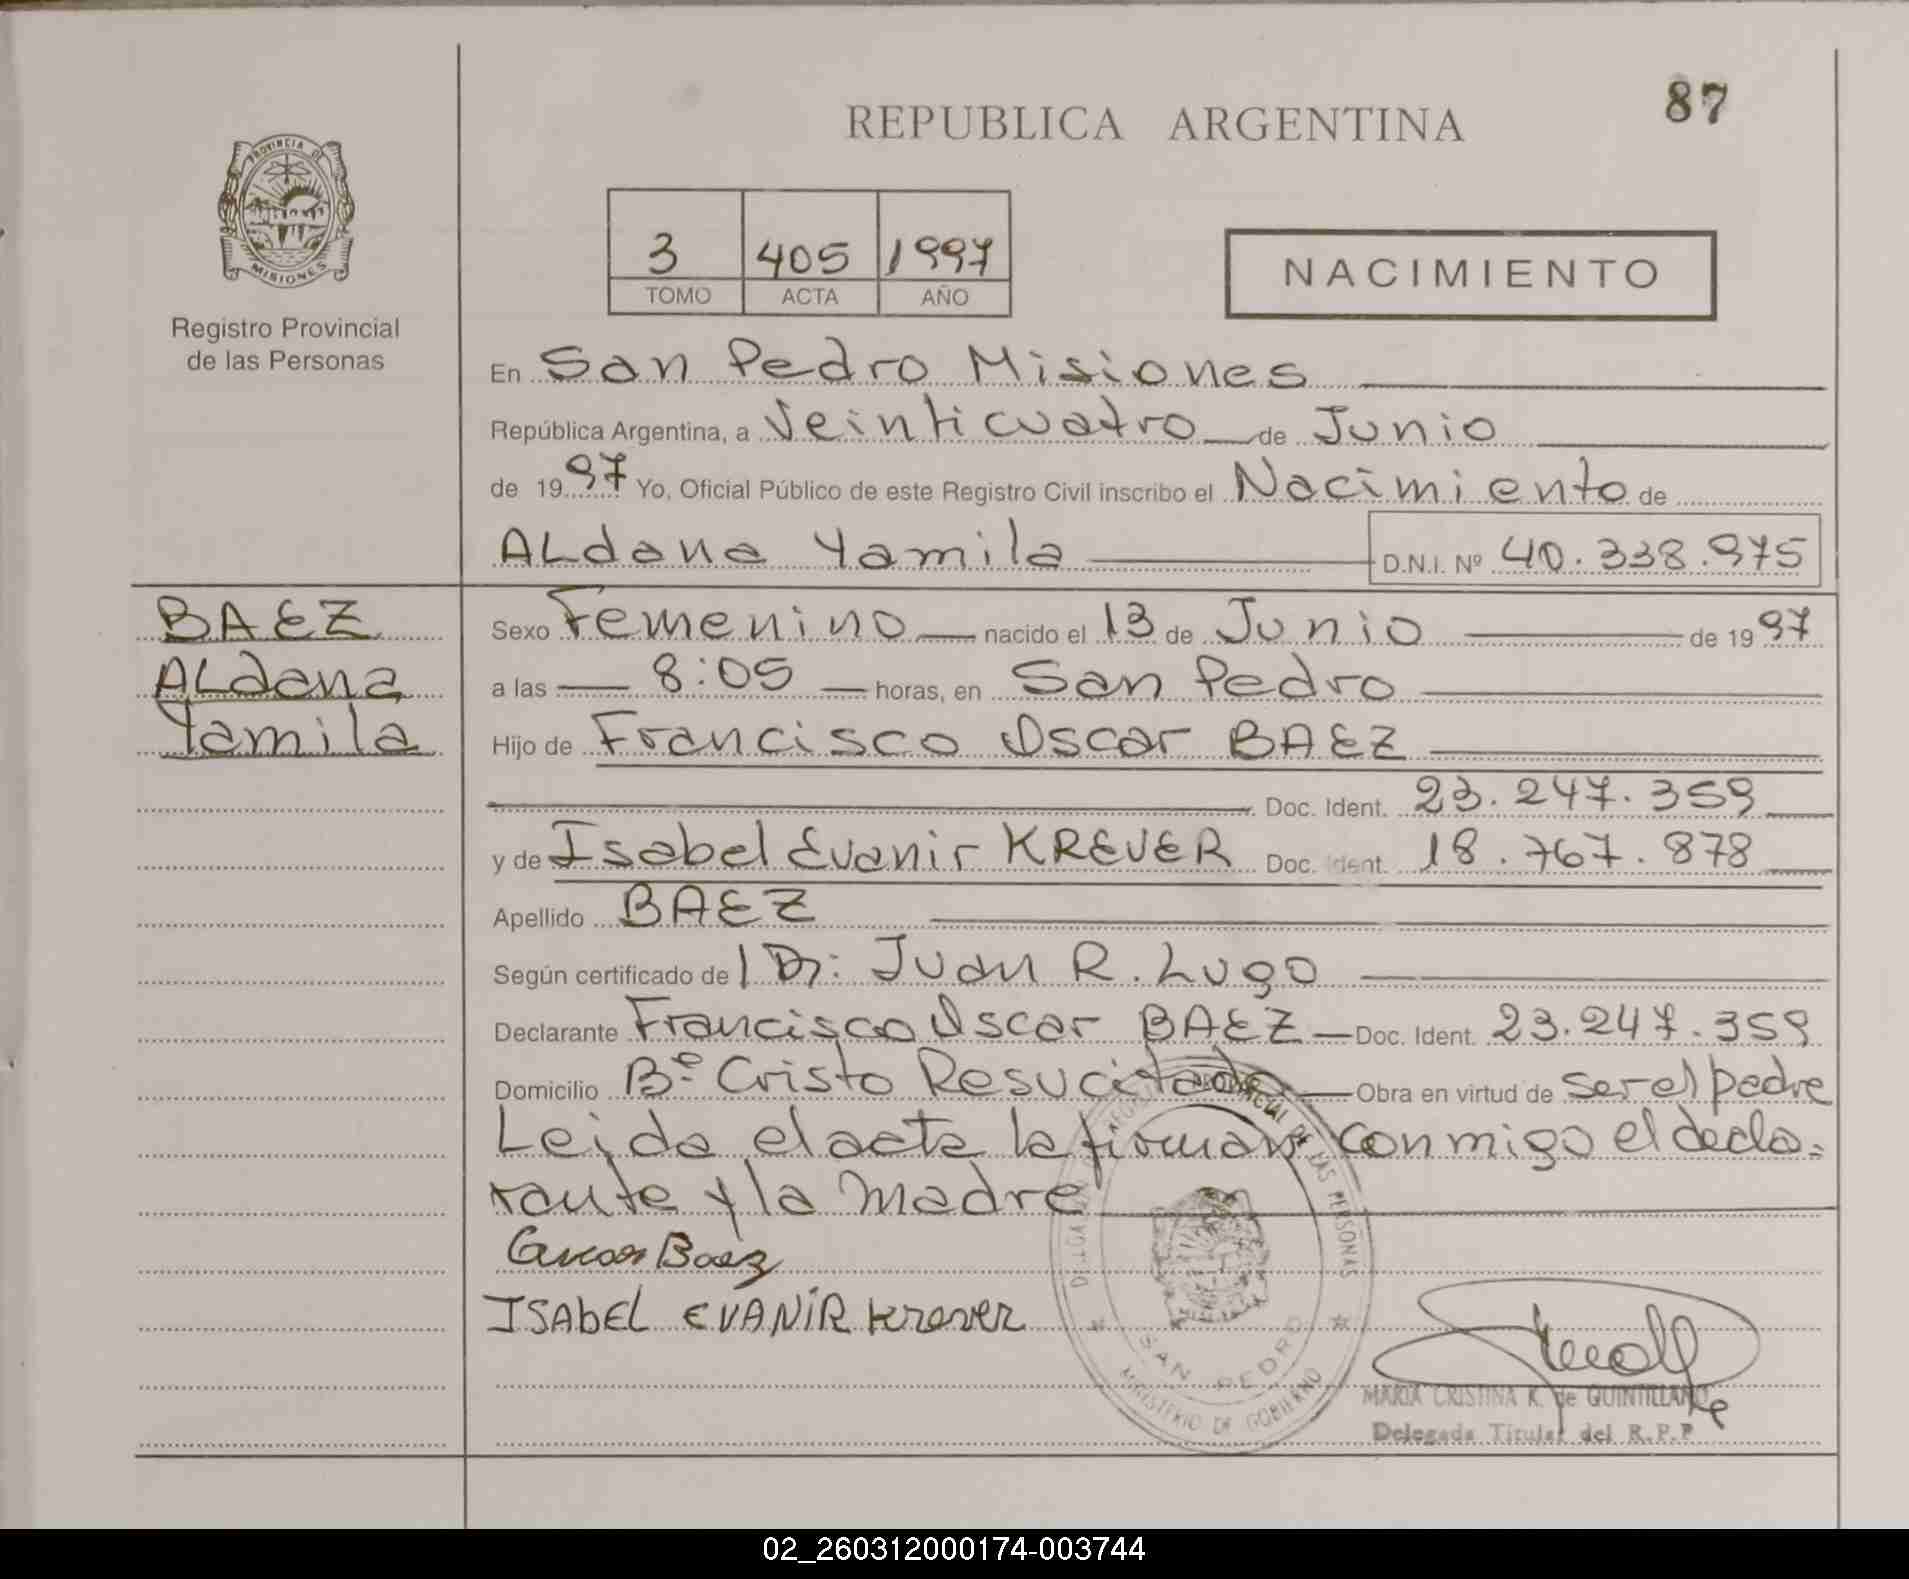 87
REPUBLICA ARGENTINA
PROVINCIA DE
MISIONES
Registro Provincial
de las Personas
3 405 1997
TOMO ACTA AÑO
NACIMIENTO
En San Pedro Misiones
República Argentina, a Veinticuatro de Junio
de 1997 Yo, Oficial Público de este Registro Civil inscribo el Nacimiento de
ALdana Yamila D.N.I. Nº 40.338.975
BAEZ
ALdana
Yamila
Sexo Femenino nacido el 13 de Junio de 1997
a las 8:05 horas, en San Pedro
Hijo de Francisco Oscar BAEZ
Doc. Ident. 23.247.359
y de Isabel Evanir KREVER Doc. Ident. 18.767.878
Apellido BAEZ
Según certificado de Dr: Juan R. Lugo
Declarante Francisco Oscar BAEZ Doc. Ident. 23.247.359
Domicilio Bº Cristo Resucitado Obra en virtud de ser el padre
Leida el acta la firman conmigo el decla-
rante y la madre
Baez
ISAbEL EVANIR Krever
PROVINCIAL DE LAS PERSONAS
SAN PEDRO
MINISTERIO DE GOBIERNO
MARIA CRISTINA K. de QUINTILLANO
Delegada Titular del R.P.P
02_260312000174-003744